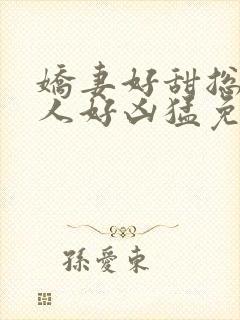 嬌妻好甜总
人好凶猛免
孫愛東